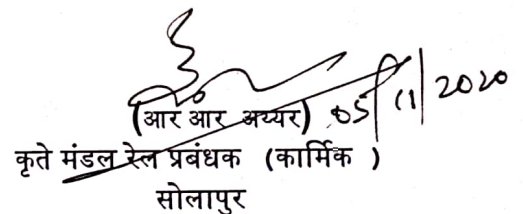 (आर आर अय्यर) 05/11/2020
कृते मंडल रेल प्रबंधक (कार्मिक )
सोलापुर